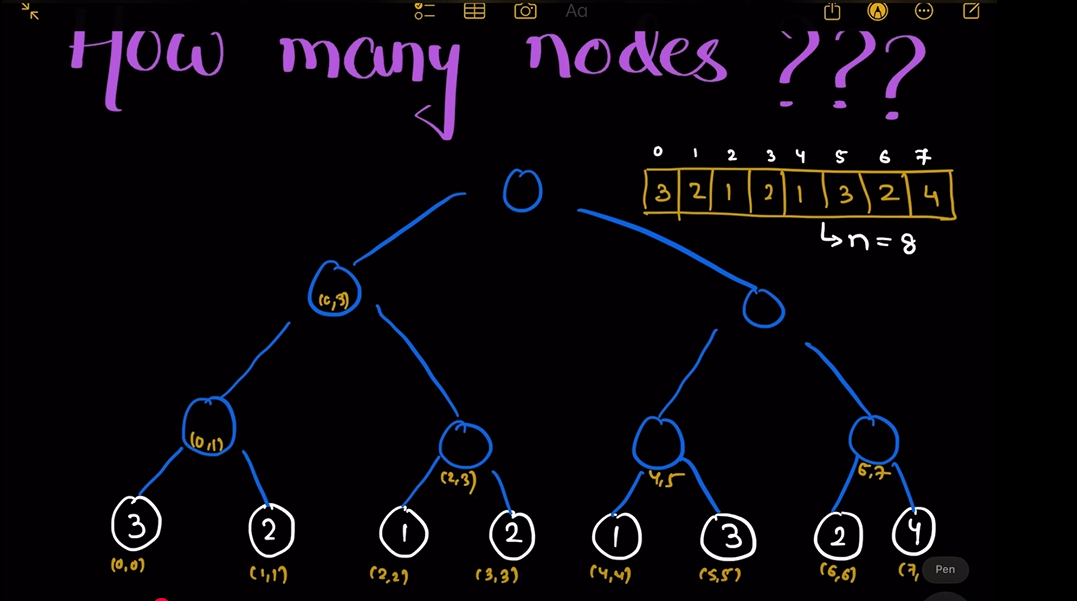 Aa
How many nodes ???
0 1 2 3 4 5 6 7
3 2 1 2 1 3 2 4
↳ n = 8
(0,3)
(0,1)
(2,3)
4,5
6,7
3 2 1 2 1 3 2 4
(0,0) (1,1) (2,2) (3,3) (4,4) (5,5) (6,6) (7,
Pen